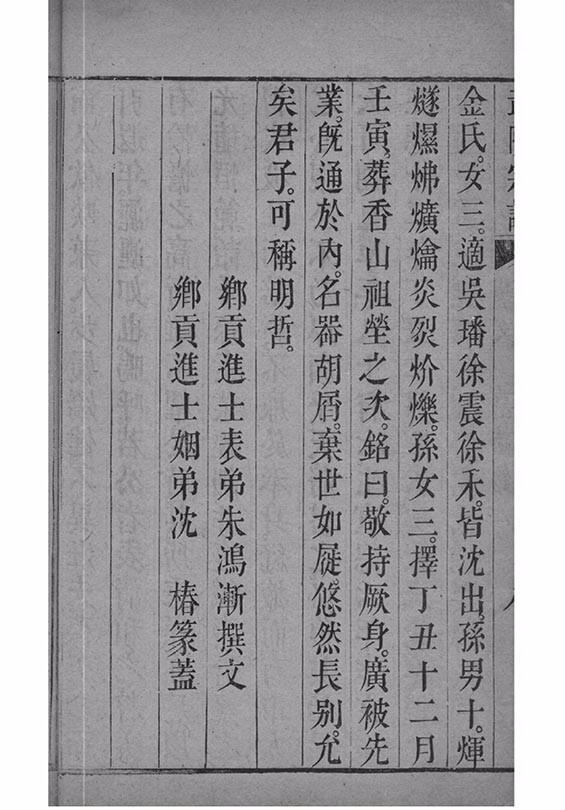 金氏。女三。適吳璠徐震徐禾。皆沈出。孫男十。煇
燧爃炥爌爚炎烮炌爍。孫女三。擇丁丑十二月
壬寅。葬香山祖塋之次。銘曰。敬持厥身。廣被先
業。旣通於內。名器胡屑。棄世如屣。悠然長別。允
矣君子。可稱明哲。
鄉貢進士表弟朱鴻漸撰文
鄉貢進士姻弟沈　椿篆蓋